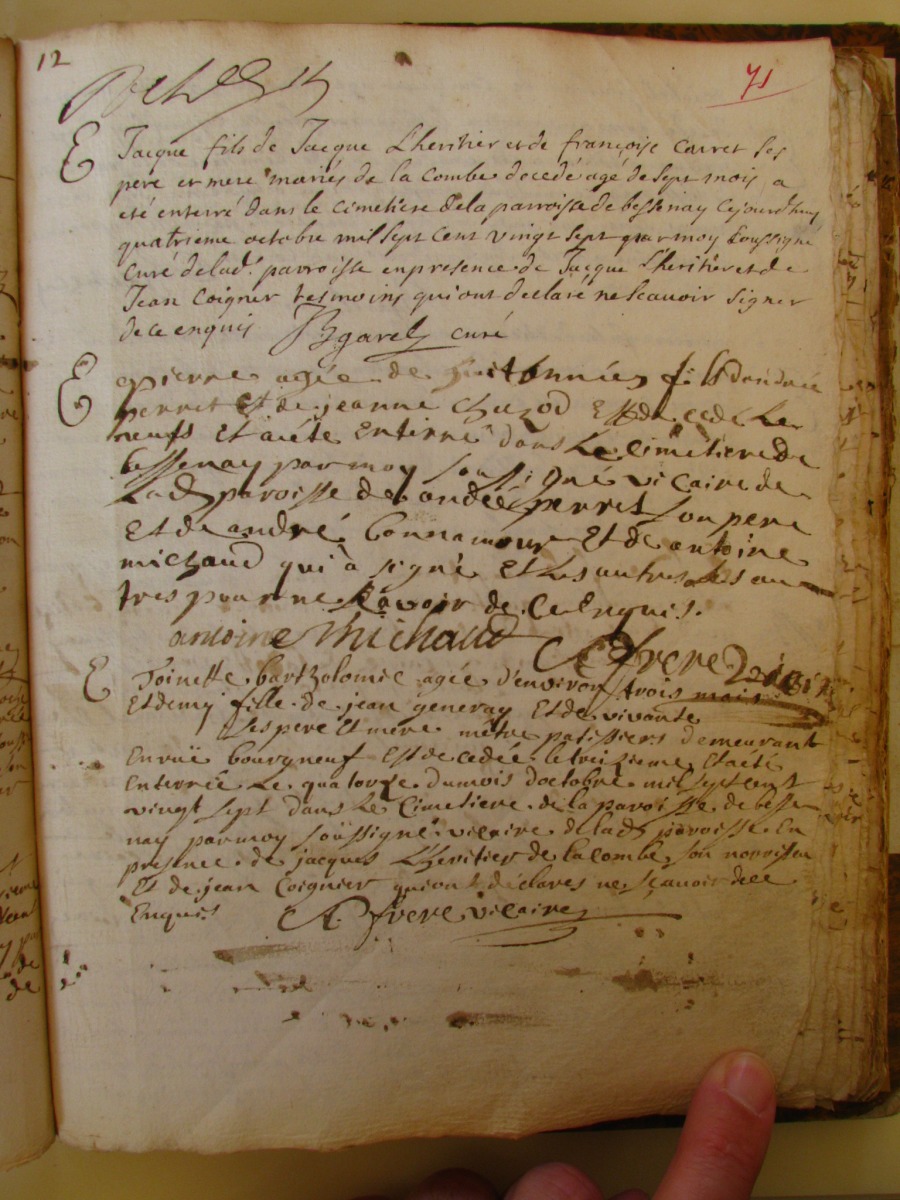 12
71
E Jacque fils de Jacque Lheritier et de françoise Carret ses
pere et mere mariés de la Combe decedé agé de sept mois a
eté enterré dans le cimetiere de la parroisse de bessenay cejourdhuy
quatrieme octobre mil sept cent vingt sept par moy soussigné
Curé de lad. parroisse en presence de Jacque Lheritier et de
Jean Coignier tesmoins qui ont declaré ne scavoir signer
de ce enquis curé
E pierre agée de huit années fils dandrée
perret et de jeanne chuzod Est decedé le
neufs Et a été Enterré dans Le cimetiere de
bessenay par moy soussigné vicaire de
Lad paroisse de andée perret son pere
Et de andré bonnamour Et de antoine
michaud qui à signé Et les autres les au
tres pour ne scavoir de ce Enquis.
antoine Michaud frere vicaire
E Toinette bartholomie agée d'environ trois mois
Et demij fille de jean generay Et de vivante
Ses pere Et mere métre patissiers demeurant
En ruë bourgneuf Est decedée le treizieme Et a eté
Enterrée Le quatorze du mois doctobre mil sept cent
vingt sept dans Le Cimetiere de la paroisse de besse
nay par moy soussigné vicaire de lad paroisse En
presence de jacques Lheritier de la combe son norrisseu
Et de jean Coignier qui ont déclarés ne scavoir de ce
Enquis frere vicaire